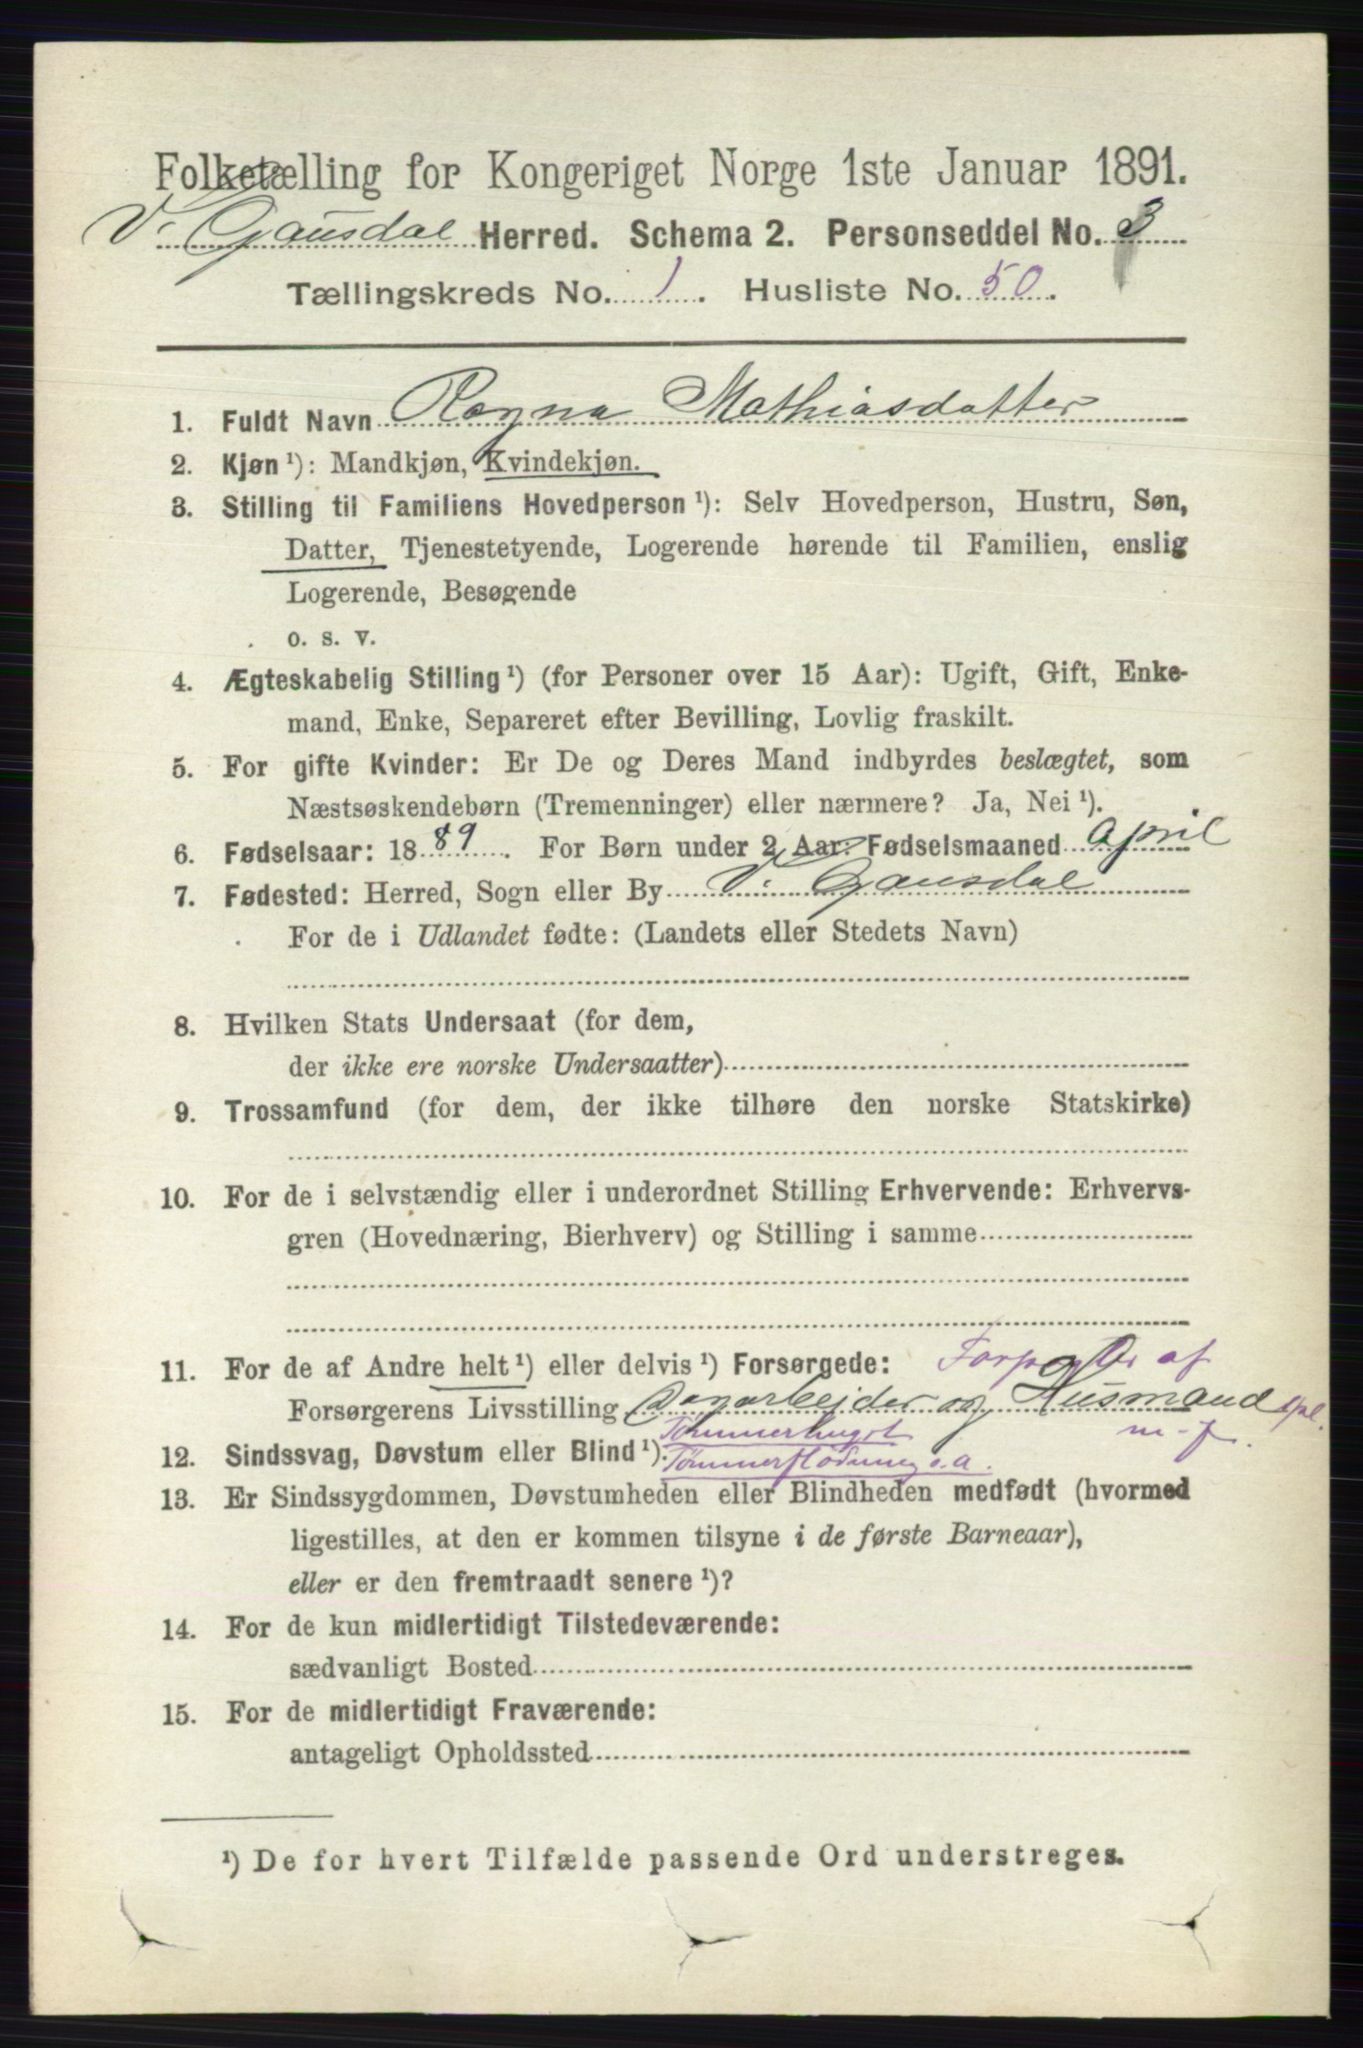 Folketælling for Kongeriget Norge 1ste Januar 1891.
V. Gausdal Herred. Schema 2. Personseddel No. 3
Tællingskreds No. 1. Husliste No. 50.
1. Fuldt Navn Ragna Mathiasdatter
2. Kjøn ¹): Mandkjøn, Kvindekjøn.
3. Stilling til Familiens Hovedperson ¹): Selv Hovedperson, Hustru, Søn,
Datter, Tjenestetyende, Logerende hørende til Familien, enslig
Logerende, Besøgende
o. s. v.
4. Ægteskabelig Stilling ¹) (for Personer over 15 Aar): Ugift, Gift, Enke-
mand, Enke, Separeret efter Bevilling, Lovlig fraskilt.
5. For gifte Kvinder: Er De og Deres Mand indbyrdes beslægtet, som
Næstsøskendebørn (Tremenninger) eller nærmere? Ja, Nei ¹).
6. Fødselsaar: 1889. For Børn under 2 Aar: Fødselsmaaned April
7. Fødested: Herred, Sogn eller By V. Gausdal
For de i Udlandet fødte: (Landets eller Stedets Navn)
8. Hvilken Stats Undersaat (for dem,
der ikke ere norske Undersaatter)
9. Trossamfund (for dem, der ikke tilhøre den norske Statskirke)
10. For de i selvstændig eller i underordnet Stilling Erhvervende: Erhvervs-
gren (Hovednæring, Bierhverv) og Stilling i samme
11. For de af Andre helt ¹) eller delvis ¹) Forsørgede: af
Forsørgerens Livsstilling Dagarbejder og Husmand
m. j.
Tømmerhugst
12. Sindssvag, Døvstum eller Blind ¹). Tømmerflødning o. a.
13. Er Sindssygdommen, Døvstumheden eller Blindheden medfødt (hvormed
ligestilles, at den er kommen tilsyne i de første Barneaar),
eller er den fremtraadt senere ¹)?
14. For de kun midlertidigt Tilstedeværende:
sædvanligt Bosted
15. For de midlertidigt Fraværende:
antageligt Opholdssted
¹) De for hvert Tilfælde passende Ord understreges.